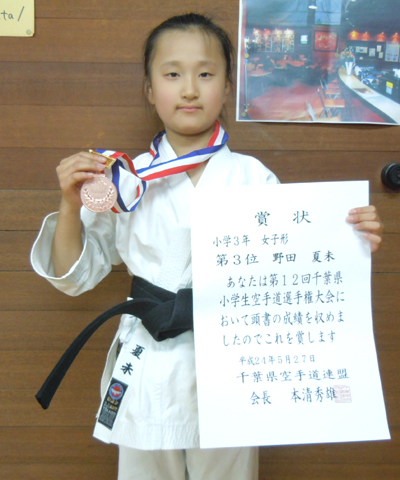 ta/
賞 状
小学3年 女子形
第3位 野田 夏未
あなたは第12回千葉県
小学生空手道選手権大会に
おいて頭書の成績を収めま
したのでこれを賞します
平成24年5月27日
千葉県空手道連盟
会長 本清秀雄
夏未